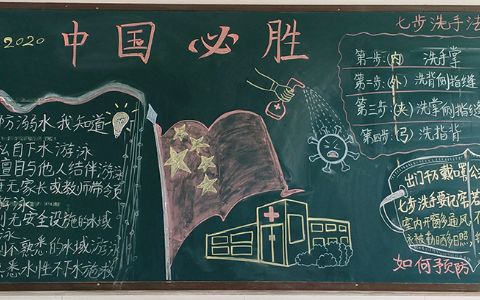 2020
中国必胜
七步洗手法
第一步:(内) 洗手掌
第二步:(外)洗背侧指缝
第三步:(夹)洗掌侧指缝
第四步:(弓)洗指背
防溺水 我知道
私自下水游泳
擅自与他人结伴游泳
无家长或教师带
无安全设施的水域
泳
不熟悉的水域游泳
悉水性不下水施救
出门千万戴口罩
七步洗手要记牢
室内开窗多通风
如何预防